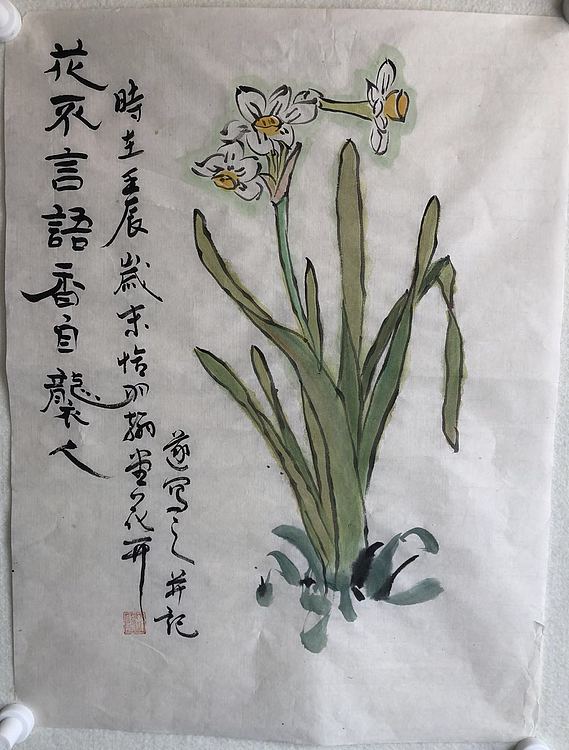 花不言語香自襲人
時在壬辰歲末恰翰堂花开
遂寫之并記